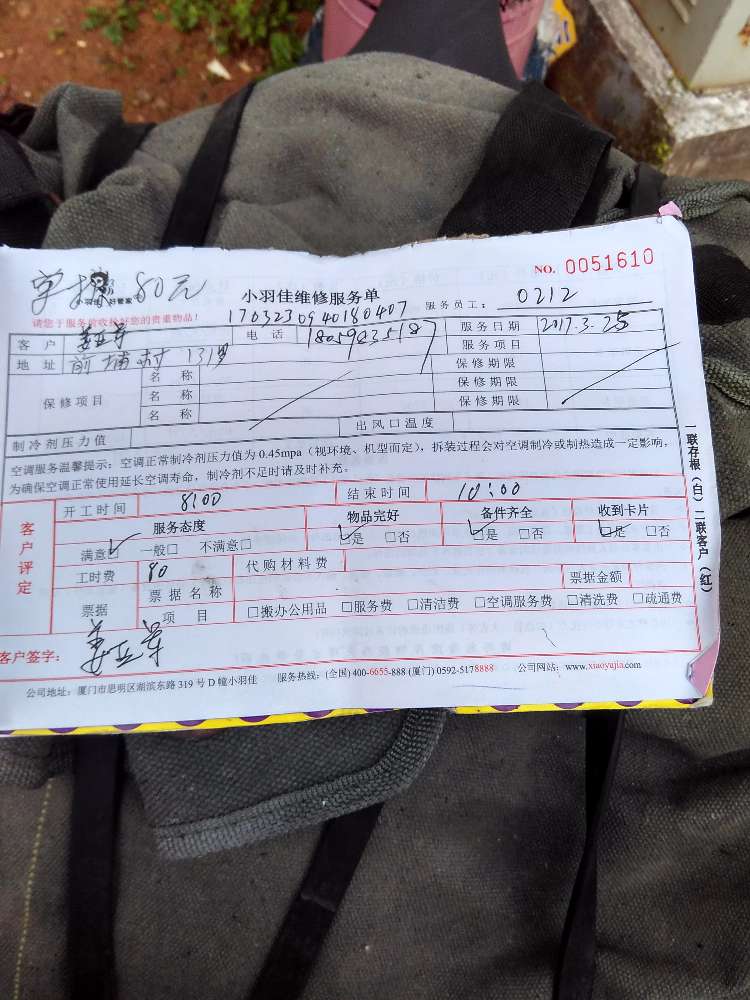 NO. 0051610
80元
小羽佳 好管家
小羽佳维修服务单
服务员工： 0212
请您于服务前收检好您的贵重物品！
1703230940180407
客户 电话 服务日期 2017.3.25
地址 前埔村 131号 服务项目
保修项目 名称 保修期限
名称 保修期限
名称 保修期限
制冷剂压力值 出风口温度
空调服务温馨提示：空调正常制冷剂压力值为 0.45mpa（视环境、机型而定），拆装过程会对空调制冷或制热造成一定影响，
为确保空调正常使用延长空调寿命，制冷剂不足时请及时补充。
开工时间 8:00 结束时间 10:00
客户评定
服务态度 物品完好 备件齐全 收到卡片
满意☑ 一般□ 不满意□ ☑是 □否 ☑是 □否 ☑是 □否
工时费 80 代购材料费
票据 票据名称 票据金额
项目 □搬办公用品 □服务费 □清洁费 □空调服务费 □清洗费 □疏通费
客户签字：
公司地址：厦门市思明区湖滨东路 319 号 D 幢小羽佳 服务热线：(全国) 400-6655-888 (厦门) 0592-5178888 公司网站：www.xiaoyujia.com
一联存根（白）二联客户（红）